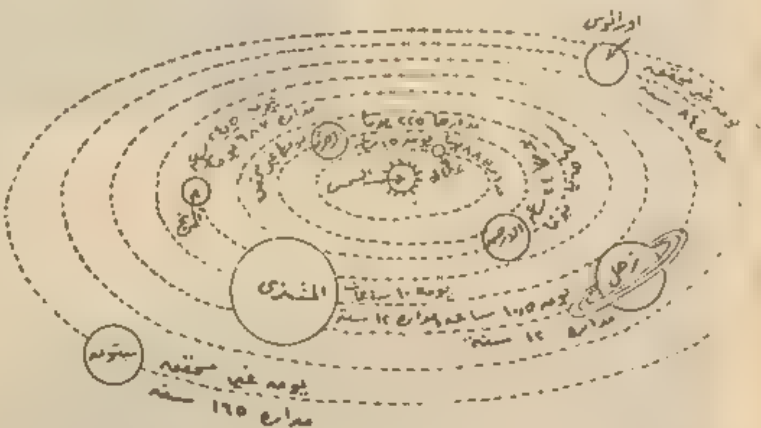 اورانوس
يومه غير محققه
مداره ٨٤ سنة
مدارها ٢٢٥ يوما
الزهرة
عطارد
الشمس
المريخ
الارض
المشترى
يومه ١٠ ساعات
زحل
يومه ١٠٫٥ ساعه ومداره ١٢ سنة
مداره ١٢ سنة
نبتونه
يومه غير محققه
مداره ١٦٥ سنة